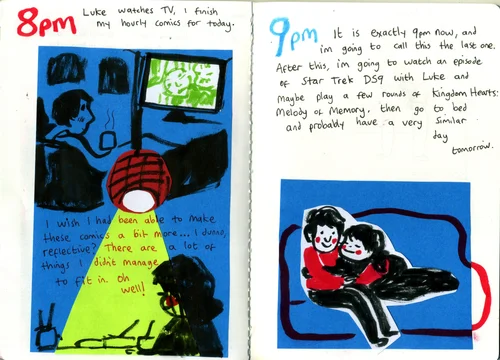 8pm
Luke watches TV, I finish
my hourly comics for today.
I wish I had been able to make
these comics a bit more... I dunno,
reflective? There are a lot of
things I didn't manage
to fit in. Oh
well!
9pm
It is exactly 9pm now, and
im going to call this the last one.
After this, im going to watch an episode
of Star Trek DS9 with Luke and
maybe play a few rounds of Kingdom Hearts:
Melody of Memory, then go to bed
and probably have a very similar
day
tomorrow.